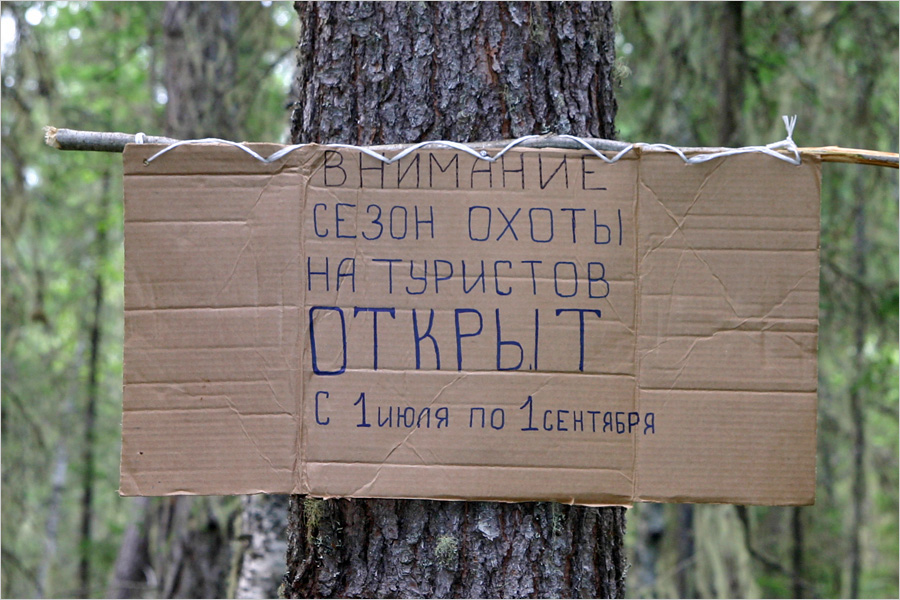 ВНИМАНИЕ
СЕЗОН ОХОТЫ
НА ТУРИСТОВ
ОТКРЫТ
С 1 ИЮЛЯ ПО 1 СЕНТЯБРЯ